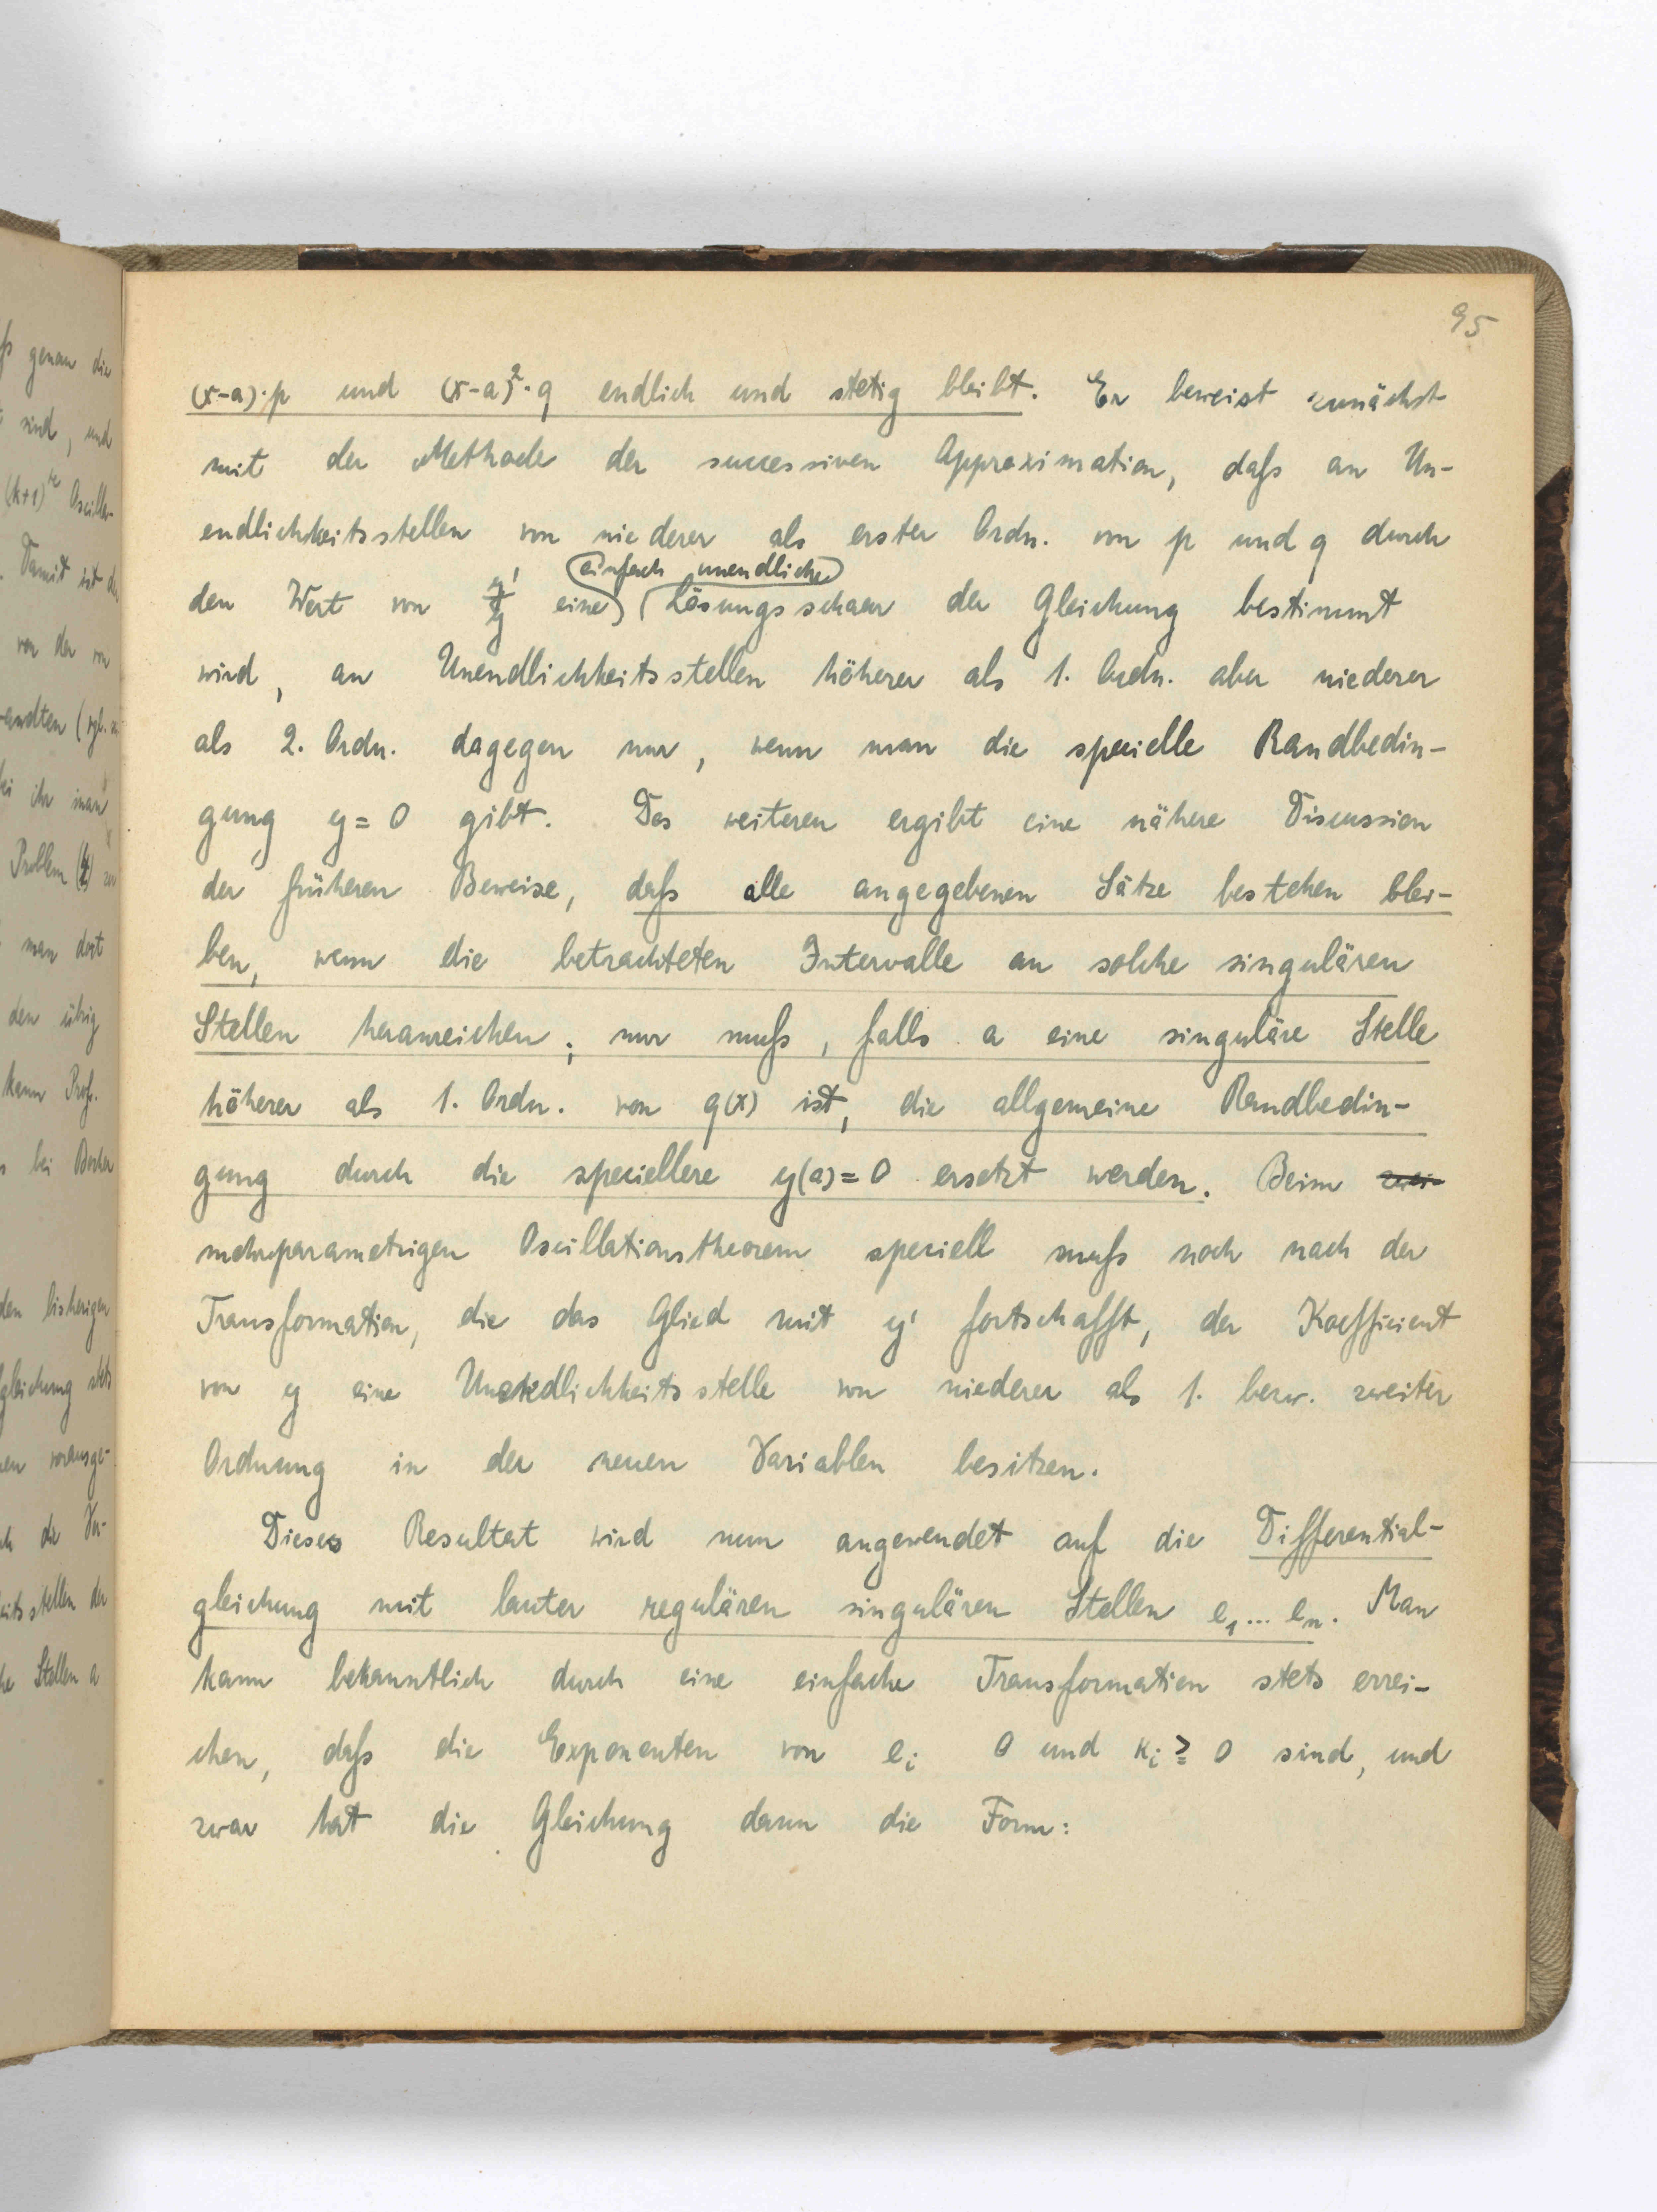 95
(x-a)·p und (x-a)²·q endlich und stetig bleibt. Er beweist zunächst
mit der Methode der successiven Approximation, daſs an Un-
endlichkeitsstellen von niederer als erster Ordn. von p und q durch
einfach unendliche
den Wert von y'/y eine Lösungsschaar der Gleichung bestimmt
wird, an Unendlichkeitsstellen höherer als 1. Ordn. aber niederer
als 2. Ordn. dagegen nur, wenn man die specielle Randbedin-
gung y = 0 gibt. Des weiteren ergibt eine nähere Discussion
der früheren Beweise, daſs alle angegebenen Sätze bestehen blei-
ben, wenn die betrachteten Intervalle an solche singulären
Stellen heranreichen; nur muſs, falls a eine singuläre Stelle
höherer als 1. Ordn. von q(x) ist, die allgemeine Randbedin-
gung durch die speciellere y(a) = 0 ersetzt werden. Beim zwei-
mehrparametrigen Oscillationstheorem speciell muſs noch nach der
Transformation, die das Glied mit y' fortschafft, der Koefficient
von y eine Unendlichkeitsstelle von niederer als 1. bezw. zweiter
Ordnung in der neuen Variablen besitzen.
Dieses Resultat wird nun angewendet auf die Differential-
gleichung mit lauter regulären singulären Stellen e₁ ... eₙ. Man
kann bekanntlich durch eine einfache Transformation stets errei-
chen, daſs die Exponenten von eᵢ 0 und κᵢ ≧ 0 sind, und
zwar hat die Gleichung dann die Form:
genau die
sind, und
(k+1)te Oscilla-
Damit ist
von der von
Problem
man dort
den übrig
kann Prof.
bei Bocher
den bisherigen
gleichung stets
vorausge-
der
stellen der
Stellen a